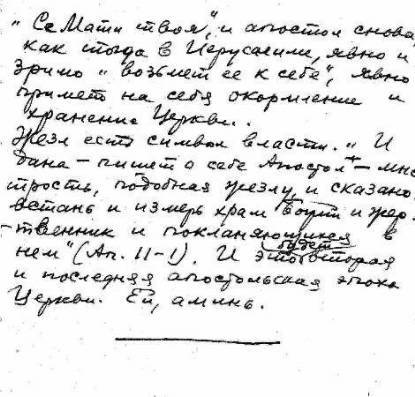 „Се Мати твоя", и апостол снова
как тогда в Иерусалиме, явно и
зримо „возьмет ее к себе", явно
примет на себя окормление и
хранение Церкви..
Жезл есть символ власти. „И
дана – пишет о себе Апостол – мне
трость, подобная жезлу, и сказано:
встань и измерь храм Божий и жер-
-твенник и покланяющихся в
нем" (Ап. 11-1). И это будет вторая
и последняя апостольская эпоха
Церкви. Ей, аминь.